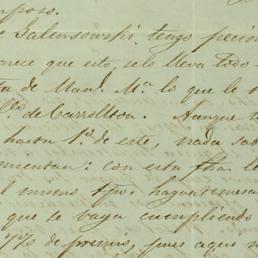 mposo.
e Salensowski tengo pecion
arece que esto, se lo lleva todo
ta de Mad. Ma. lo que le
de Carrollton. Aunque
hasta 1º de este, nada sab
mientan: con esta fha. le
l mismo tpo. hagan
que se vaya cumpliendo
7% de premio, pues aqui n